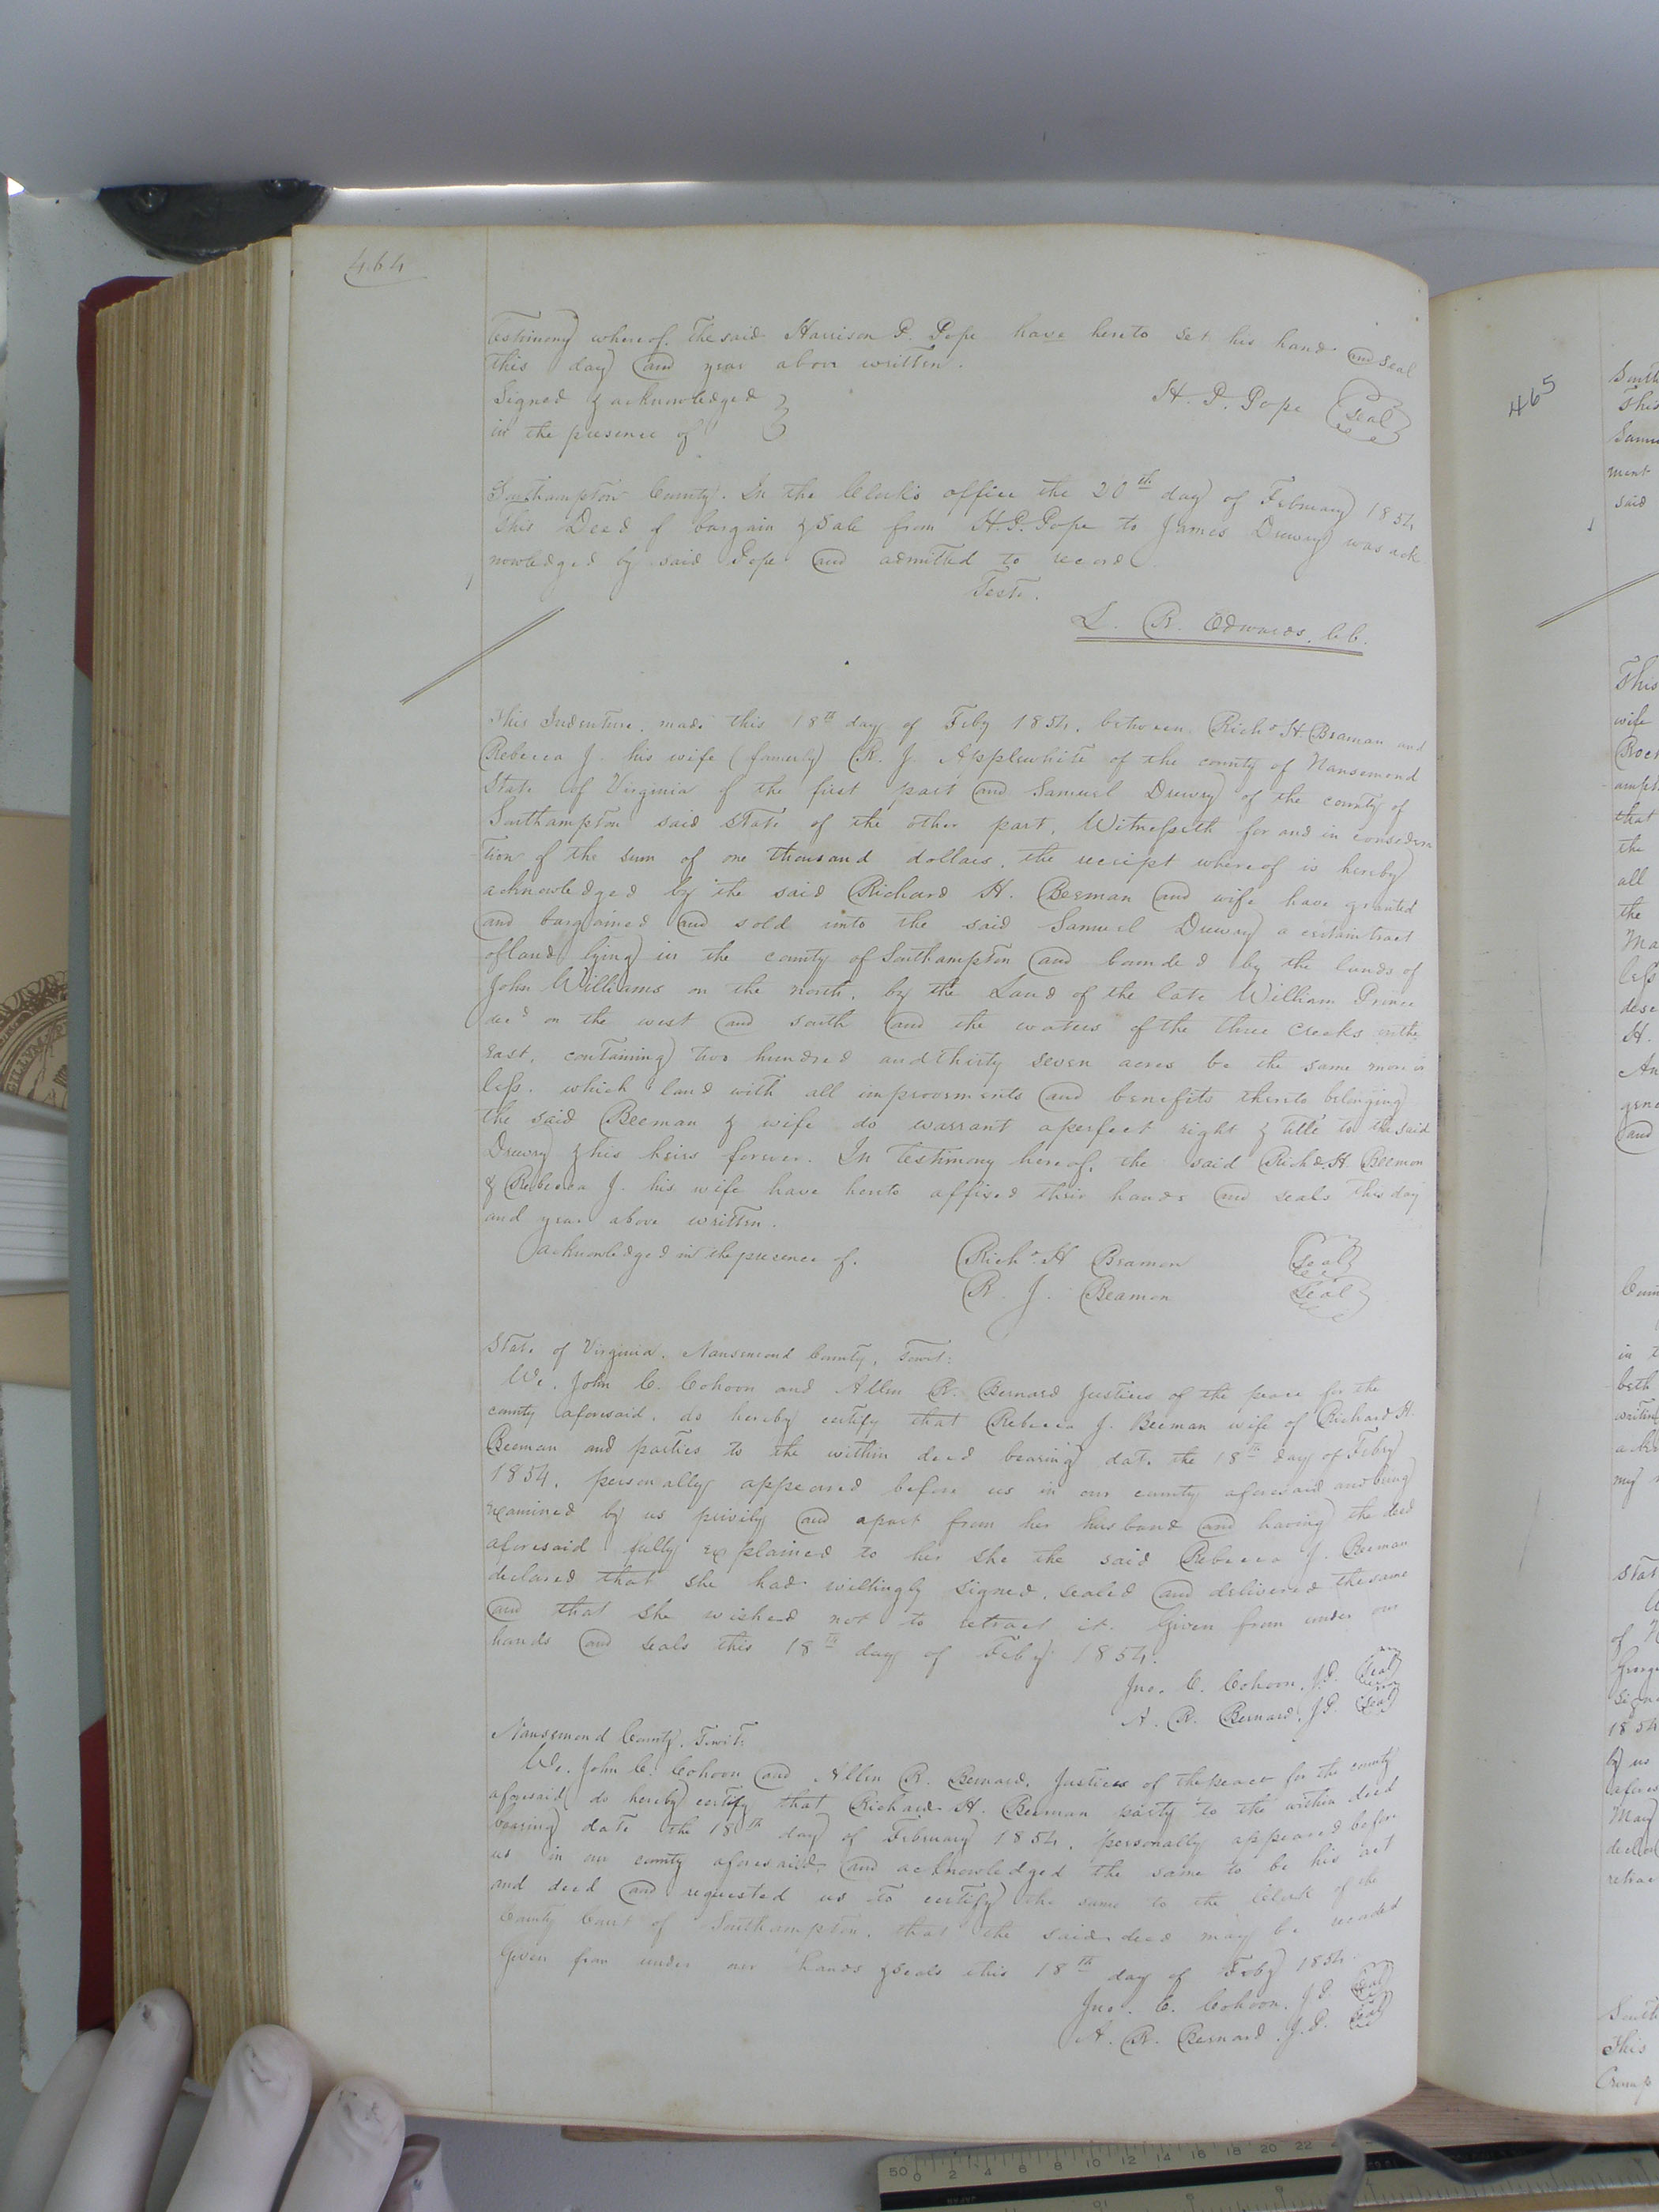 464
Testimony whereof. The said Harrison P. Pope have hereto set his hand and seal
this day and year above written.
Signed & acknowledged
in the presence of
H. P. Pope Seal
Southampton County. In the Clerk's office the 20th day of February 1854
This Deed of bargain & Sale from H. P. Pope to James Drewry was ack
nowledged by said Pope and admitted to record
Teste.
L. R. Edwards. C.C.
This Indenture, made this 18th day of Feby 1854, between Richd H. Beaman and
Rebecca J. his wife (formerly) R. J. Applewhite of the county of Nansemond
State of Virginia of the first part and Samuel Drewry of the county of
Southampton said State of the other part, Witnesseth for and in considera
tion of the sum of one thousand dollars, the receipt whereof is hereby
acknowledged by the said Richard H. Beeman and wife have granted
and bargained and sold unto the said Samuel Drewry a certain tract
of land lying in the county of Southampton and bounded by the lands of
John Williams on the north, by the Land of the late William Prince
decd on the west and south and the waters of the three Creeks on the
East, containing two hundred and thirty seven acres be the same more or
less. which land with all improvements and benefits thereto belonging
the said Beeman & wife do warrant a perfect right & title to the said
Drewry & his heirs forever. In Testimony hereof, the said Richd. H. Beemon
& Rebecca J. his wife have hereto affixed their hands and seals this day
and year above written.
acknowledged in the presence of.
Richd H Beamon Seal
R. J. Beamon Seal
State of Virginia. Nansemond County, Towit:
We, John C. Cohoon and Allen R. Bernard Justices of the peace for the
county aforesaid, do hereby certify that Rebecca J. Beeman wife of Richard H.
Beeman and parties to the within deed bearing date the 18th day of Feby
1854, personally appeared before us in our county aforesaid and being
examined by us privily and apart from her husband and having the deed
aforesaid fully explained to her she the said Rebecca J. Beeman
declared that she had willingly signed, sealed and delivered the same
and that she wished not to retract it. Given from under our
hands and seals this 18th day of Feby 1854.
Jno. C. Cohoon, J.P. Seal
A. R. Bernard, J.P. Seal
Nansemond County. Towit:
We, John C. Cohoon and Allen R. Bernard, Justices of the peace for the county
aforesaid do hereby certify that Richard H. Beeman party to the within deed
bearing date the 18th day of February 1854, personally appeared before
us in our county aforesaid, and acknowledged the same to be his act
and deed and requested us to certify the same to the Clerk of the
County Court of Southampton, that the said deed may be recorded
Given from under our hands & seals this 18th day of Feby 1854.
Jno. C. Cohoon, J.P. Seal
A. R. Bernard, J.P. Seal
465
This
said
This
wife
that
the
all
the
less
H.
and
both
my
of
1854
by us
May
This
50 0 2 4 6 8 10 12 14 16 18 20 22